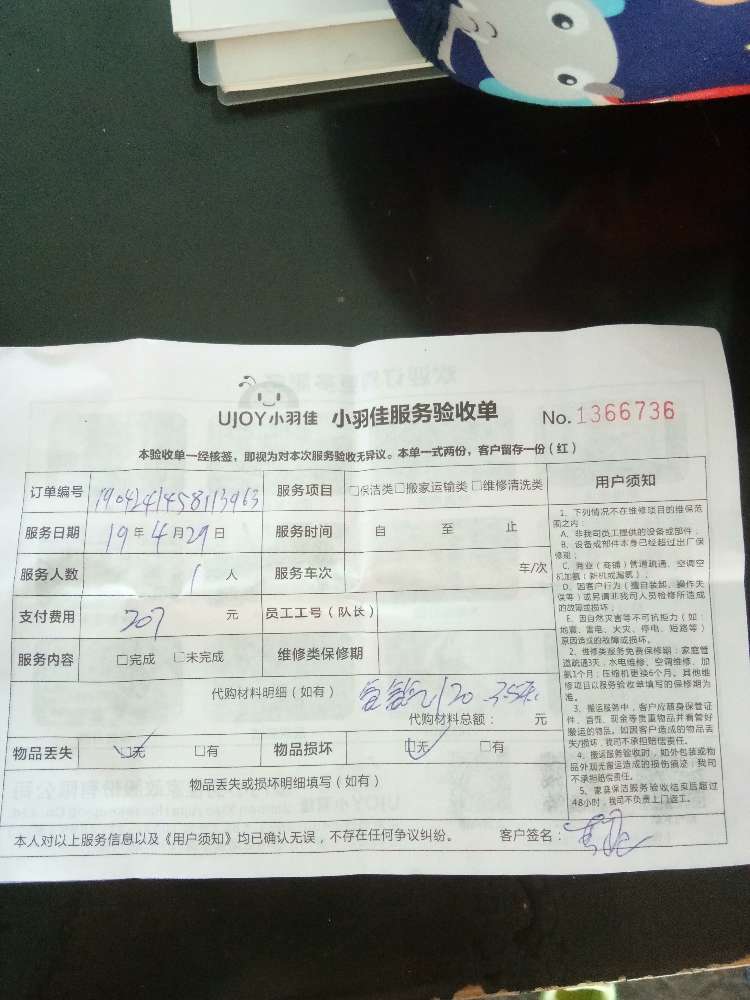 UJOY小羽佳 小羽佳服务验收单 No.1366736
本验收单一经核签，即视为对本次服务验收无异议。本单一式两份，客户留存一份（红）
订单编号 服务项目 □保洁类□搬家运输类□维修清洗类
服务日期 19年4月29日 服务时间 自 至 止
服务人数 1人 服务车次 车/次
支付费用 207 元 员工工号（队长）
服务内容 □完成 □未完成 维修类保修期
代购材料明细（如有）
代购材料总额： 元
物品丢失 □无 □有 物品损坏 □无 □有
物品丢失或损坏明细填写（如有）
本人对以上服务信息以及《用户须知》均已确认无误，不存在任何争议纠纷。 客户签名：
用户须知
1、下列情况不在维修项目的维保范
围之内：
A、非我司员工提供的设备或部件；
B、设备或部件本身已经超过出厂保
修班；
C、商业（商铺）管道疏通、空调空
机加氨（新机或漏氨）；
D、因客户行为（擅自装卸、操作失
误等）或另请非我司人员检修所造成
的故障或损坏；
E、因自然灾害等不可抗拒力（如：
地震、雷电、火灾、停电、短路等）
原因造成的故障或损坏。
2、维修类服务免费保修期：家庭管
道疏通3天；水电维修、空调维修、加
氨1个月；压缩机更换6个月。其他维
修项目以服务验收单填写的保修期为
准。
3、搬运服务中，客户应随身保管证
件、首饰、现金等贵重物品并看管好
搬运的物品。如因客户造成的物品丢
失/损坏，我司不承担赔偿责任。
4、搬运服务验收时，如外包装或物
品外观无搬运造成的损伤痕迹，我司
不承担赔偿责任。
5、家庭保洁服务验收结束后超过
48小时，我司不负责上门返工。